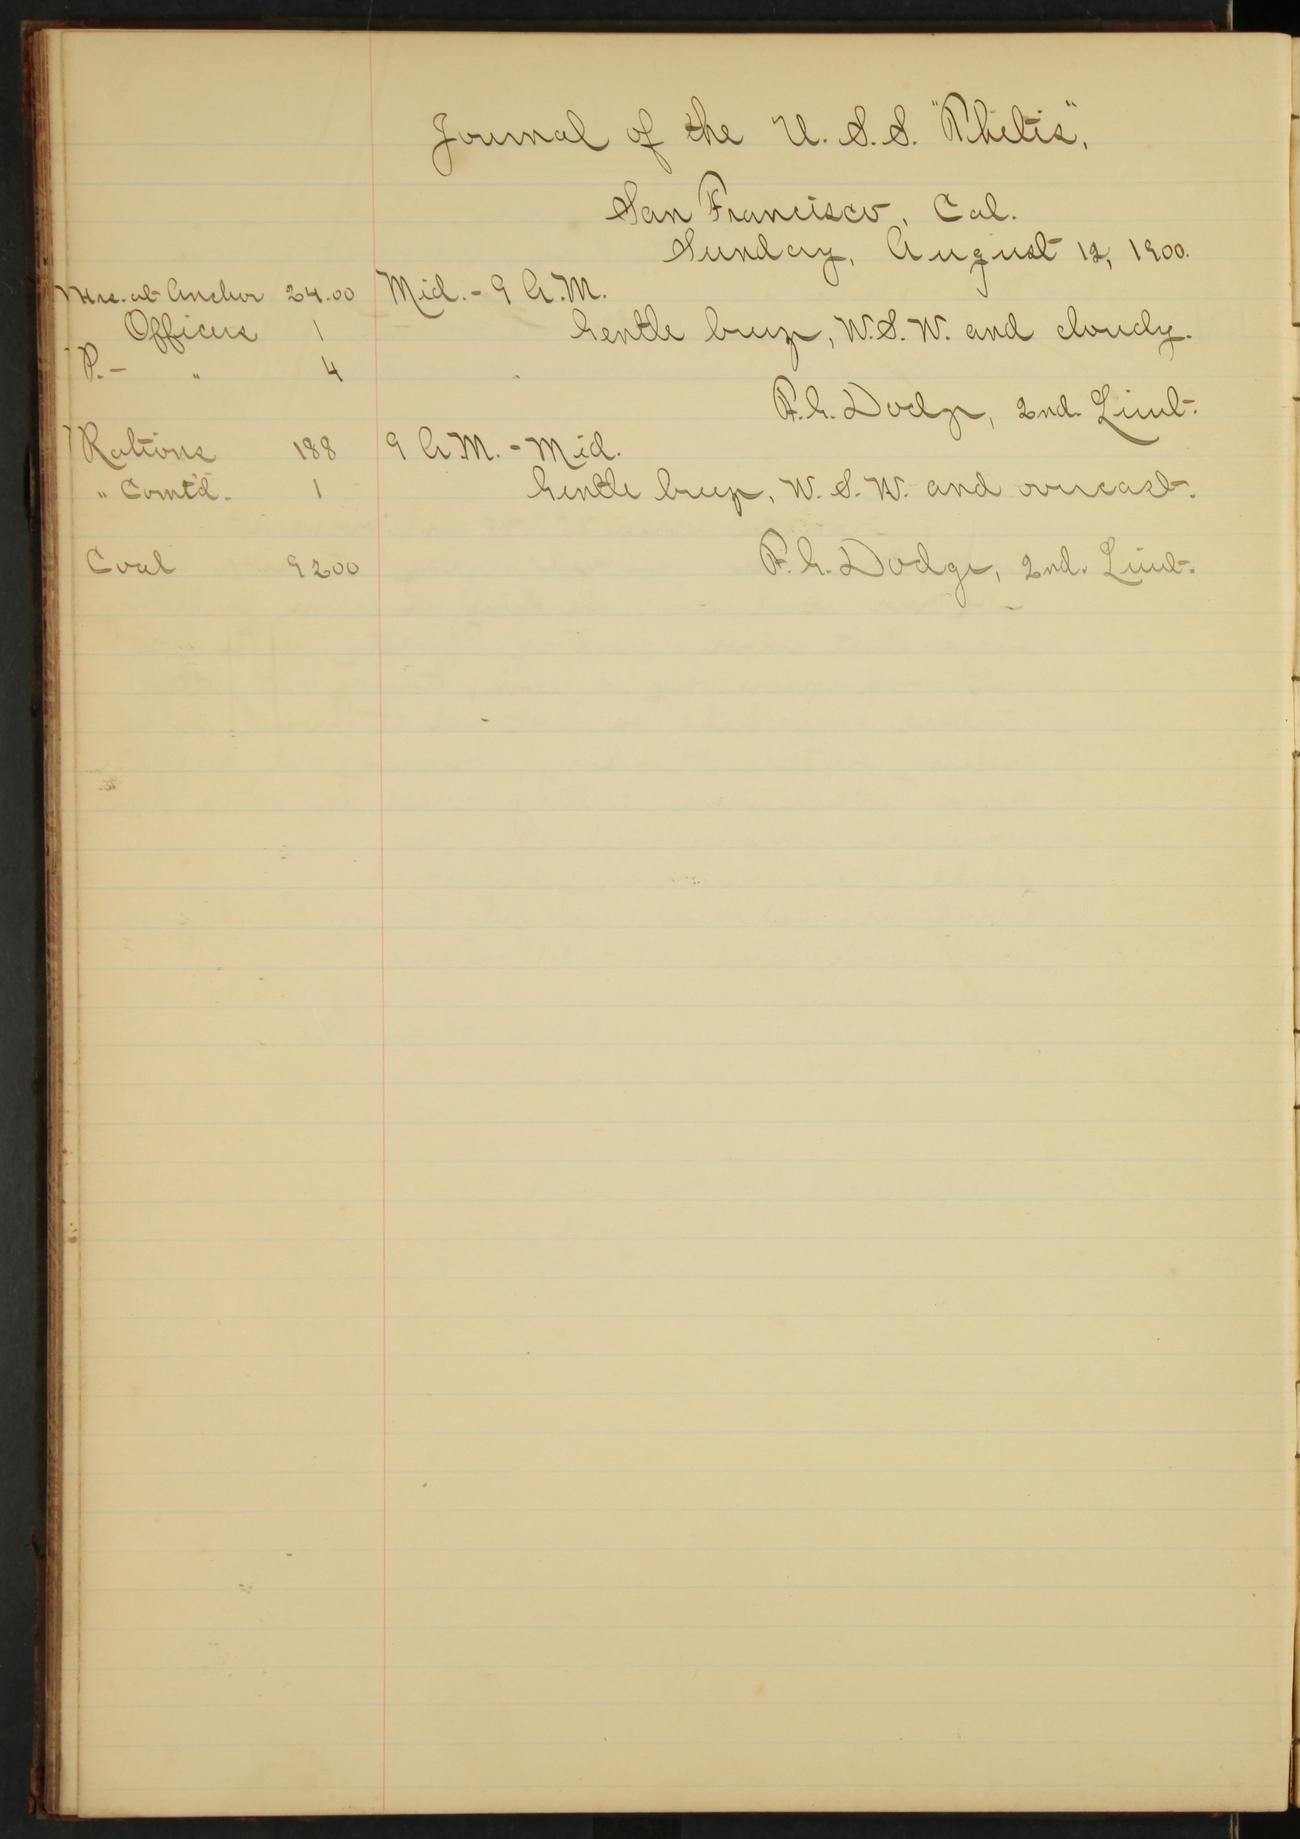 Journal of the U.S.S. "Thetis",
San Francisco, Cal.
Sunday, August 12, 1900.
Hrs. at Anchor 24.00 Mid. - 9 A.M.
Officers 1 Gentle breeze, W.S.W. and cloudy.
P. - " 4
F.G. Dodge, 2nd. Lieut.
Rations 188 9 A.M. - Mid.
" Comt'd. 1 Gentle breeze, W.S.W. and overcast.
Coal 9200 F.G. Dodge, 2nd. Lieut.